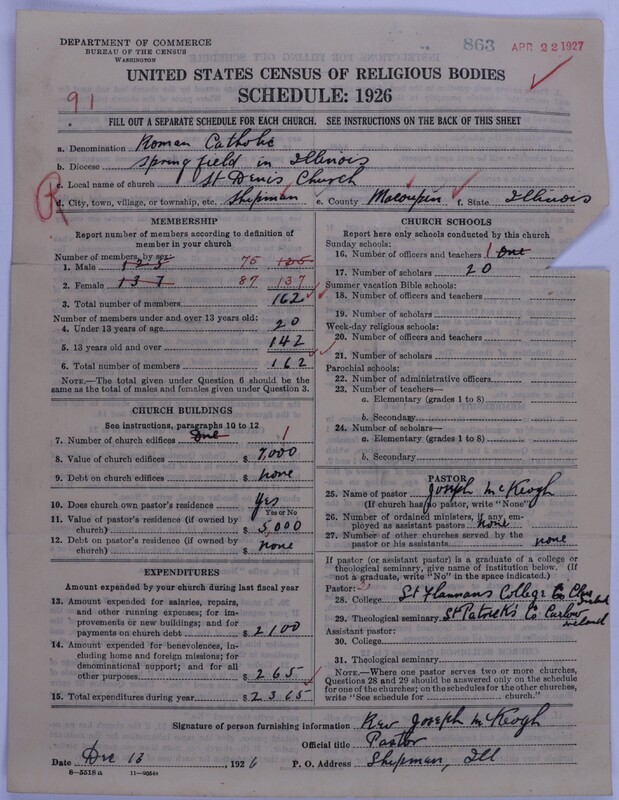 DEPARTMENT OF COMMERCE
BUREAU OF THE CENSUS
WASHINGTON
863 APR 22 1927
UNITED STATES CENSUS OF RELIGIOUS BODIES
SCHEDULE: 1926
91
FILL OUT A SEPARATE SCHEDULE FOR EACH CHURCH. SEE INSTRUCTIONS ON THE BACK OF THIS SHEET
a. Denomination Roman Catholic
b. Diocese Springfield in Illinois
c. Local name of church St Denis Church
d. City, town, village, or township, etc. Shipman e. County Macoupin f. State Illinois
R
MEMBERSHIP
Report number of members according to definition of member in your church
Number of members, by sex:
1. Male 125 75 125
2. Female 137 87 137
3. Total number of members 162
Number of members under and over 13 years old:
4. Under 13 years of age 20
5. 13 years old and over 142
6. Total number of members 162
NOTE.—The total given under Question 6 should be the same as the total of males and females given under Question 3.
CHURCH BUILDINGS
See instructions, paragraphs 10 to 12
7. Number of church edifices One 1
8. Value of church edifices $ 7,000
9. Debt on church edifices $ none
10. Does church own pastor's residence yes
Yes or No
11. Value of pastor's residence (if owned by
church) $ 5,000
12. Debt on pastor's residence (if owned by
church) $ none
EXPENDITURES
Amount expended by your church during last fiscal year
13. Amount expended for salaries, repairs,
and other running expenses; for im-
provements or new buildings; and for
payments on church debt $ 2100
14. Amount expended for benevolences, in-
cluding home and foreign missions; for
denominational support; and for all
other purposes $ 265
15. Total expenditures during year $ 2365
CHURCH SCHOOLS
Report here only schools conducted by this church
Sunday schools:
16. Number of officers and teachers 1 One
17. Number of scholars 20
Summer vacation Bible schools:
18. Number of officers and teachers
19. Number of scholars
Week-day religious schools:
20. Number of officers and teachers
21. Number of scholars
Parochial schools:
22. Number of administrative officers
23. Number of teachers—
a. Elementary (grades 1 to 8)
b. Secondary
24. Number of scholars—
a. Elementary (grades 1 to 8)
b. Secondary
PASTOR
25. Name of pastor Joseph McKeogh
(If church has no pastor, write "None")
26. Number of ordained ministers, if any, em-
ployed as assistant pastors none
27. Number of other churches served by the
pastor or his assistants none
If pastor (or assistant pastor) is a graduate of a college or
theological seminary, give name of institution below. (If
not a graduate, write "No" in the space indicated.)
Pastor:
28. College St Flannans College Co Clare Ireland
29. Theological seminary St Patrick's Co Carlow Ireland
Assistant pastor:
30. College
31. Theological seminary
NOTE.—Where one pastor serves two or more churches,
Questions 28 and 29 should be answered only on the schedule
for one of the churches; on the schedules for the other churches,
write "See schedule for church."
Signature of person furnishing information Rev Joseph McKeogh
Official title Pastor
Date Dec 13 1926 P. O. Address Shipman, Ill
8—5518 a